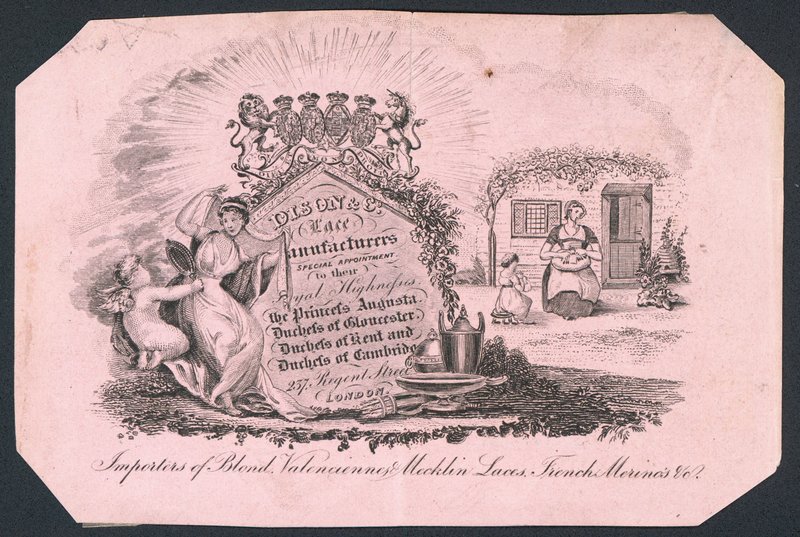 DISON & Co.
Lace
Manufacturers
SPECIAL APPOINTMENT
to their
Royal Highneſses,
the Princeſs Augusta
Ducheſs of Gloucester
Ducheſs of Kent and
Ducheſs of Cambridge
237, Regent Street
LONDON
Importers of Blond, Valenciennes & Mecklin Laces, French Merino's &c.